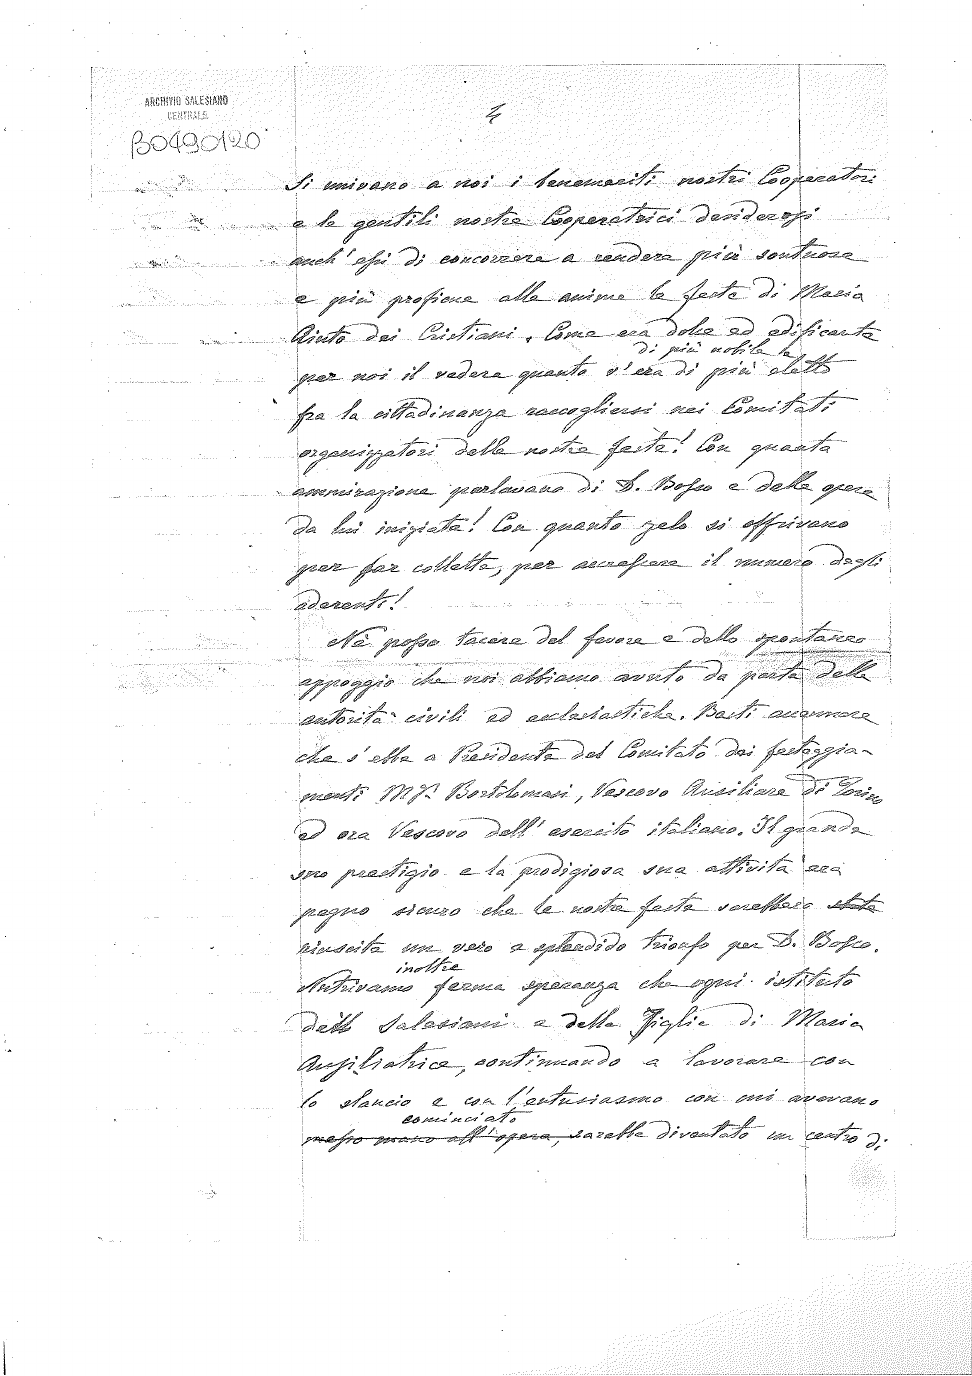 ARCHIVIO SALESIANO
CENTRALE
B0490120
4
Si univano a noi i benemeriti nostri Cooperatori
e le gentili nostre Cooperatrici desiderosi
anch'essi di concorrere a rendere più sontuose
e più proficue alle anime le feste di Maria
Aiuto dei Cristiani. Come era dolce ed edificante
di più nobile e
per noi il vedere quanto v'era di più eletto
fra la cittadinanza raccogliersi nei Comitati
organizzatori delle nostre feste! Con quanta
ammirazione parlavano di D. Bosco e delle opere
da lui iniziate! Con quanto zelo si offrivano
per far collette, per accrescere il numero degli
aderenti!
Nè posso tacere del favore e dello spontaneo
appoggio che noi abbiamo avuto da parte delle
autorità civili ed ecclesiastiche. Basti accennare
che s'ebbe a Presidente del Comitato dei festeggia-
menti Mgr. Bartolomasi, Vescovo Ausiliare di Torino
ed ora Vescovo dell'esercito italiano. Il grande
suo prestigio e la prodigiosa sua attività era
pegno sicuro che le nostre feste sarebbero state
riuscite un vero e splendido trionfo per D. Bosco.
inoltre
Nutrivamo ferma speranza che ogni istituto
dei Salesiani e delle Figlie di Maria
Ausiliatrice, continuando a lavorare con
lo slancio e con l'entusiasmo con cui avevano
cominciato
messo mano all'opera, sarebbe diventato un centro di